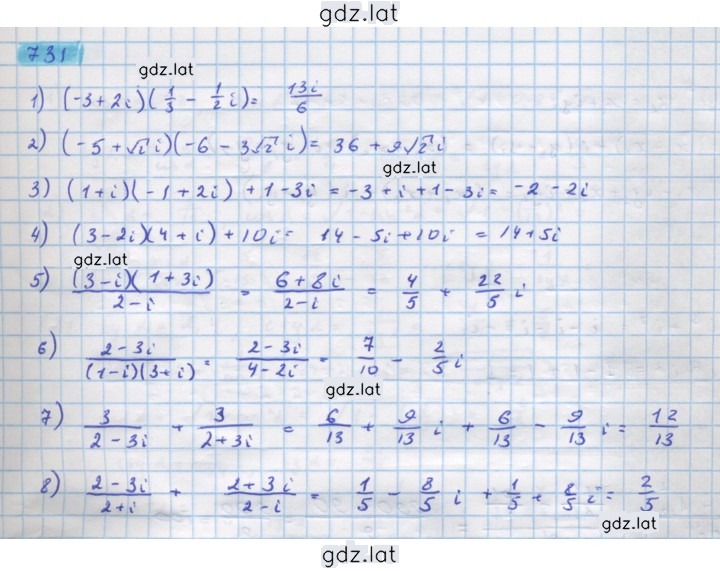 gdz.lat
731
gdz.lat
1) (-3+2i)(1/3 - 1/2 i) = 13i/6
2) (-5+√2 i)(-6-3√2 i) = 36+9√2 i
gdz.lat
3) (1+i)(-1+2i)+1-3i = -3+i+1-3i = -2-2i
4) (3-2i)(4+i)+10i = 14-5i+10i = 14+5i
gdz.lat
5) (3-i)(1+3i)/2-i = 6+8i/2-i = 4/5 + 22/5 i
6) 2-3i/(1-i)(3+i) = 2-3i/4-2i = 7/10 - 2/5 i
gdz.lat
7) 3/2-3i + 3/2+3i = 6/13 + 9/13 i + 6/13 - 9/13 i = 12/13
8) 2-3i/2+i + 2+3i/2-i = 1/5 - 8/5 i + 1/5 + 8/5 i = 2/5
gdz.lat
gdz.lat